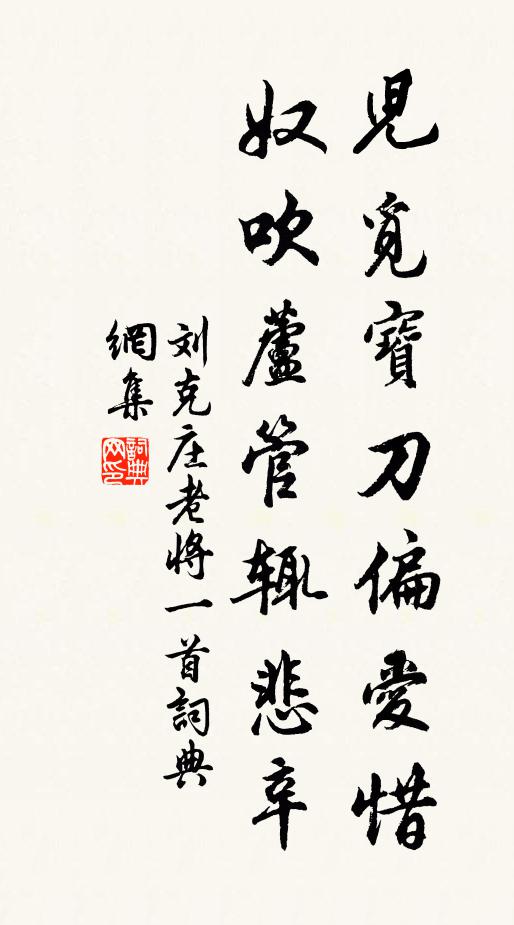 児覓寳刀偏愛惜
奴吹蘆管辄悲辛
刘克庄老将一首詞典
網集
詞典网印